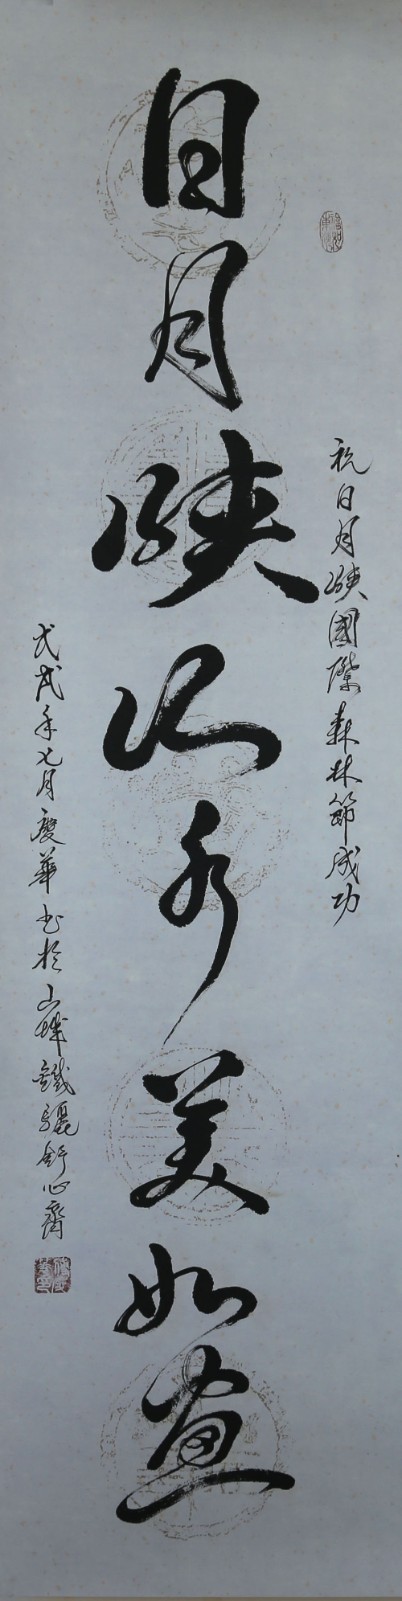 祝日月峡國際森林節成功
日月峡山水美如画
戊戌年七月慶華书於山城鐵驪舒心齋